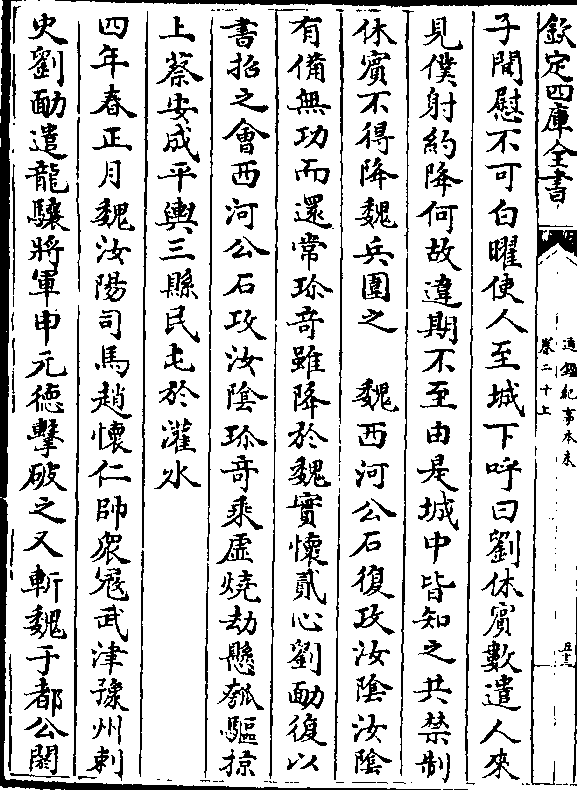 欽定四庫全書
通鑑紀事本末
卷二十上
子聞慰不可白曜使人至城下呼曰劉休賓數遣人來
見僕射約降何故違期不至由是城中皆知之共禁制
休賓不得降魏兵圍之　魏西河公石復攻汝陰汝陰
有備無功而還常珍奇雖降於魏實懷貳心劉勔復以
書招之會西河公石攻汝陰珍奇乘虛燒劫懸瓠驅掠
上蔡安成平輿三縣民屯於灌水
四年春正月魏汝陽司馬趙懷仁帥衆寇武津豫州刺
史劉勔遣龍驤將軍申元德擊破之又斬魏于都公閼